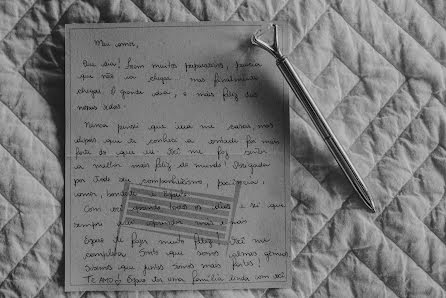 Meu amor,
Que dia! Foram muitos preparativos, parecia
que não ia chegar... mas finalmente
chegou o grande dia, o mais feliz das
nossas vidas.
Nunca pensei que ia me casar, mas
depois que te conheci a vontade foi mais
forte do que eu. Você me faz sentir
a mulher mais feliz do mundo! Obrigada
por todo seu companheirismo, paciência,
amor, bondade
Com você todos os dias e sei que
sempre mais
Espero te fazer muito feliz Você me
completa. Sinto que somos almas gêmeas
sabemos que juntos somos mais fortes!
TE AMO Espero ter uma família linda com você